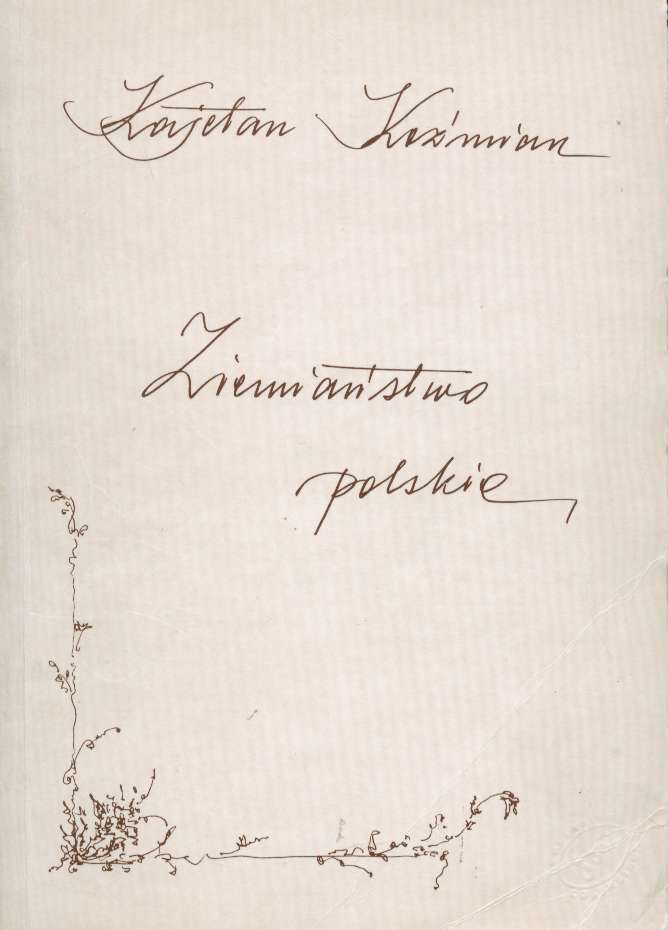 Kajetan Koźmian
Ziemiaństwo
polskie